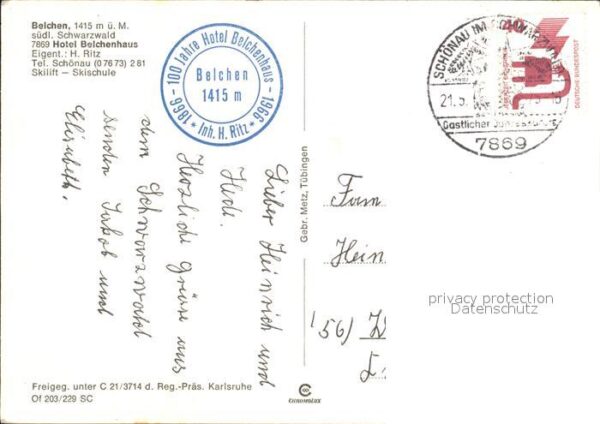 Belchen, 1415 m ü. M.
südl. Schwarzwald
7869 Hotel Belchenhaus
Eigent.: H. Ritz
Tel. Schönau (0 76 73) 2 81
Skilift – Skischule
100 Jahre Hotel Belchenhaus
1866 * Inh. H. Ritz * 1966
Belchen
1415 m
SCHÖNAU IM SCHWARZWALD
21.5.
Gastlicher
7869
DEUTSCHE BUNDESPOST
Lieber Heinrich und
Hedi.
Herzliche Grüsse aus
dem Schwarzwald
senden Jakob und
Elisabeth.
Gebr. Metz, Tübingen
Fam
Hein
(56) W
privacy protection
DATENSCHUTZ
Freigeg. unter C 21/3714 d. Reg.-Präs. Karlsruhe
Of 203/229 SC